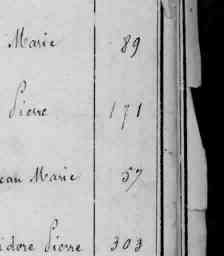 Marie 89
Pierre 171
ean Marie 57
idore Pierre 303